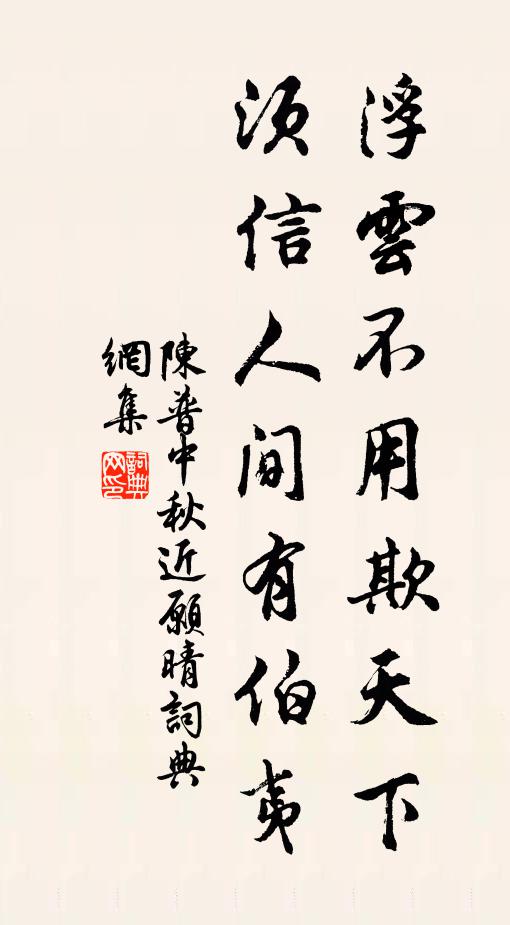 浮雲不用欺天下
須信人间有伯夷
陳普中秋近願晴詞典
網集
詞典
网印